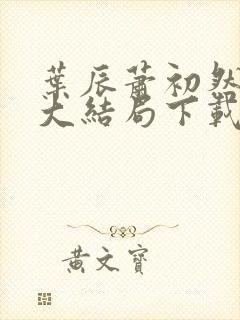 葉辰蕭初然
大結局下載
黃文寶